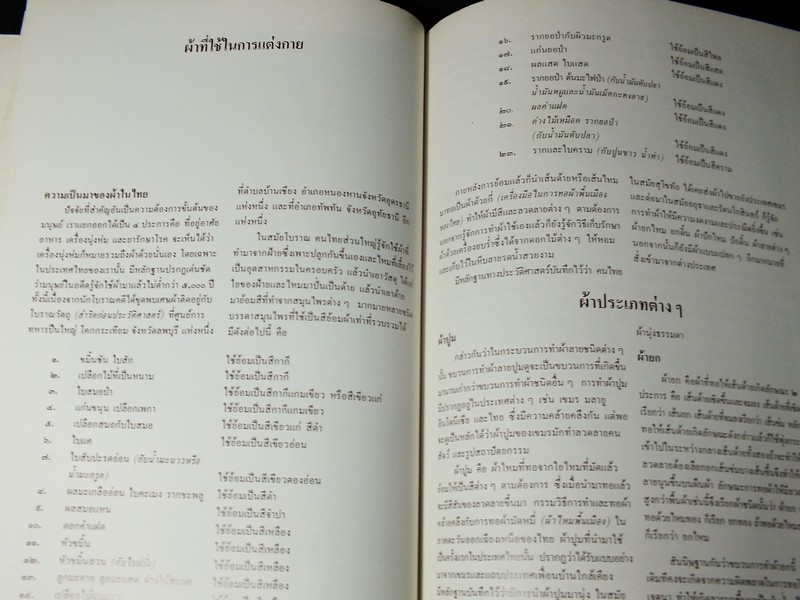 ผ้าที่ใช้ในการแต่งกาย
ความเป็นมาของผ้าในไทย
ปัจจัยที่สำคัญอันเป็นความต้องการขั้นต้นของ
มนุษย์ เราแยกออกได้เป็น ๔ ประการคือ ที่อยู่อาศัย
อาหาร เครื่องนุ่งห่ม และยารักษาโรค จะเห็นได้ว่า
เครื่องนุ่งห่มก็หมายรวมถึงผ้าด้วยนั่นเอง โดยเฉพาะ
ในประเทศไทยของเรานั้น มีหลักฐานปรากฏเด่นชัด
ว่ามนุษย์ในอดีตรู้จักใช้ผ้ามาแล้วไม่ต่ำกว่า ๕,๐๐๐ ปี
ทั้งนี้เนื่องจากนักโบราณคดีได้ขุดพบเศษผ้าติดอยู่กับ
โบราณวัตถุ (สำริดก่อนประวัติศาสตร์) ที่ศูนย์การ
ทหารปืนใหญ่ โคกกระเทียม จังหวัดลพบุรี แห่งหนึ่ง
ที่ตำบลบ้านเชียง อำเภอหนองหานจังหวัดอุดรธานี
แห่งหนึ่ง และที่อำเภอทัพทัน จังหวัดอุทัยธานี อีก
แห่งหนึ่ง
ในสมัยโบราณ คนไทยส่วนใหญ่รู้จักใช้ผ้าที่
ทำมาจากฝ้ายซึ่งเพาะปลูกกันขึ้นเองและไหมที่เลี้ยงไว้
เป็นอุตสาหกรรมในครอบครัว แล้วนำเอาวัสดุ ได้แก่
ใยของฝ้ายและไหมมาปั่นเป็นด้าย แล้วนำเอาด้าย
มาย้อมสีที่ทำจากสมุนไพรต่าง ๆ มากมายหลายชนิด
บรรดาสมุนไพรที่ใช้เป็นสีย้อมผ้าเท่าที่รวบรวมได้
มีดังต่อไปนี้ คือ
๑. ขมิ้นชัน ใบสัก ใช้ย้อมเป็นสีกากี
๒. เปลือกไม้ที่เป็นหนาม ใช้ย้อมเป็นสีกากี
๓. ใบสมอป่า ใช้ย้อมเป็นสีกากีแกมเขียว หรือสีเขียวแก่
๔. แก่นขนุน เปลือกเพกา ใช้ย้อมเป็นสีกากีแกมเขียว
๕. เปลือกสมอกับใบสมอ ใช้ย้อมเป็นสีเขียวแก่ สีดำ
๖. ใบแค ใช้ย้อมเป็นสีเขียวอ่อน
๗. ใบสับปะรดอ่อน (กับน้ำมะนาวหรือ
น้ำมะกรูด) ใช้ย้อมเป็นสีเขียวตองอ่อน
๘. ผลมะเกลืออ่อน ใบคะเมง รากชะพลู ใช้ย้อมเป็นสีดำ
๙. ผลสมอแหน ใช้ย้อมเป็นสีจำปา
๑๐. ดอกคำแฝด ใช้ย้อมเป็นสีเหลือง
๑๑. หัวขมิ้น ใช้ย้อมเป็นสีเหลือง
๑๒. หัวขมิ้นสวน ใช้ย้อมเป็นสีเหลือง
๑๓. ลูกมะตาย ใช้ย้อมเป็นสีเหลือง
๑๔. ใช้ย้อมเป็นสี
๑๖. รากยอป่ากับผิวมะกรูด ใช้ย้อมเป็นสีไพล
๑๗. แก่นยอป่า ใช้ย้อมเป็นสีแดง
๑๘. ผลแสด ใบแสด ใช้ย้อมเป็นสีแดง
๑๙. รากยอป่า ต้นมะไฟป่า (กับน้ำมันตับปลา
น้ำมันหมูและน้ำมันเม็ดกะทงลาย) ใช้ย้อมเป็นสีแดง
๒๐. ผลคำแฝด ใช้ย้อมเป็นสีแดง
๒๑. ด่างไม้เหมือด รากยอป่า
(กับน้ำมันตับปลา) ใช้ย้อมเป็นสีแดง
๒๓. รากและใบคราม (กับปูนขาว น้ำด่าง) ใช้ย้อมเป็นสีคราม
ภายหลังการย้อมแล้วก็นำเส้นด้ายหรือเส้นไหม
มาทอเป็นผ้าด้วยกี่ (เครื่องมือในการทอผ้าพื้นเมือง
ของไทย) ทำให้ผ้ามีสีและลวดลายต่าง ๆ ตามต้องการ
นอกจากรู้จักการทำผ้าใช้เองแล้วก็ยังรู้จักวิธีเก็บรักษา
ผ้าด้วยเครื่องอบร่ำซึ่งได้จากดอกไม้ต่าง ๆ ให้หอม
และเก็บไว้ในหีบลายรดน้ำสวยงาม
มีหลักฐานทางประวัติศาสตร์บันทึกไว้ว่า คนไทย
ในสมัยสุโขทัย ได้เคยส่งผ้าไปขายยังประเทศเขมร
และต่อมาในสมัยอยุธยาและรัตนโกสินทร์ ก็รู้จัก
การทำผ้าให้มีความงดงามและประณีตยิ่งขึ้น เช่น
ผ้ายกไหม ยกดิ้น ผ้าปักไหม ปักดิ้น ผ้าลายต่าง ๆ
นอกจากนั้นก็ยังมีผ้าแบบแปลก ๆ อีกมากมายที่
สั่งเข้ามาจากต่างประเทศ
ผ้าประเภทต่าง ๆ
ผ้าปูม
กล่าวกันว่าในกระบวนการทำผ้าลายชนิดต่าง ๆ
นั้น ขบวนการทำผ้าลายปูมดูจะเป็นขบวนการที่เกิดขึ้น
มานานเก่ากว่าขบวนการทำผ้าชนิดอื่น ๆ การทำผ้าปูม
มีปรากฏอยู่ในประเทศต่าง ๆ เช่น เขมร มลายู
อินโดนีเซีย และไทย ซึ่งมีความคล้ายคลึงกัน แต่พอ
จะดูเป็นหลักได้ว่าผ้าปูมของเขมรมักทำลวดลายคน
สัตว์ และรูปสถาปัตยกรรม
ผ้าปูม คือ ผ้าไหมที่ทอจากใยไหมที่มัดแล้ว
ย้อมให้เป็นสีต่าง ๆ ตามต้องการ ซึ่งเมื่อนำมาทอแล้ว
จะมีสีสันของลวดลายขึ้นมา กรรมวิธีการทำและทอผ้า
คล้ายคลึงกับการทอผ้ามัดหมี่ (ผ้าไหมพื้นเมือง) ใน
ภาคตะวันออกเฉียงเหนือของไทย ผ้าปูมที่นำมาใช้
เป็นครั้งแรกในประเทศไทยนั้น ปรากฏว่าได้รับแบบอย่าง
มาจากเขมรและแถบประเทศเพื่อนบ้านใกล้เคียง
มีหลักฐานบันทึกไว้ว่า มีการนำผ้าปูมมานุ่ง ในสมัย
ผ้านุ่งธรรมดา
ผ้ายก
ผ้ายก คือผ้าที่ทอให้เส้นด้ายเกิดลักษณะ ๒
ประการ คือ เส้นด้ายที่ขึ้นและจมลง เส้นด้ายที่เชิดขึ้น
เรียกว่า เส้นยก เส้นด้ายที่จมลงเรียกว่า เส้นข่ม หลัก
ทอให้เส้นด้ายเกิดลักษณะดังกล่าวแล้วก็ใช้พุ่งกระสวย
เข้าไปในระหว่างกลางเส้นด้ายทั้งสองถ้าจะให้เกิด
ลวดลายต้องเลือกยกเส้นข่มบางเส้นขึ้น จึงทำให้เกิด
ลายนูนขึ้นบนผืนผ้า ลักษณะที่เกิดเป็นลาย
สูงกว่าพื้นผ้าเช่นนี้จึงเรียกผ้าชนิดนั้นว่า ผ้ายก ถ้า
ทอด้วยไหมทอง ก็เรียก ยกทอง ถ้าทอด้วยไหม
ก็เรียกว่า ยกไหม
สันนิษฐานกันว่าขบวนการทำผ้าด้วยวิธีนี้
เดิมทีคงจะเกิดจากความผิดพลาดในการทอ